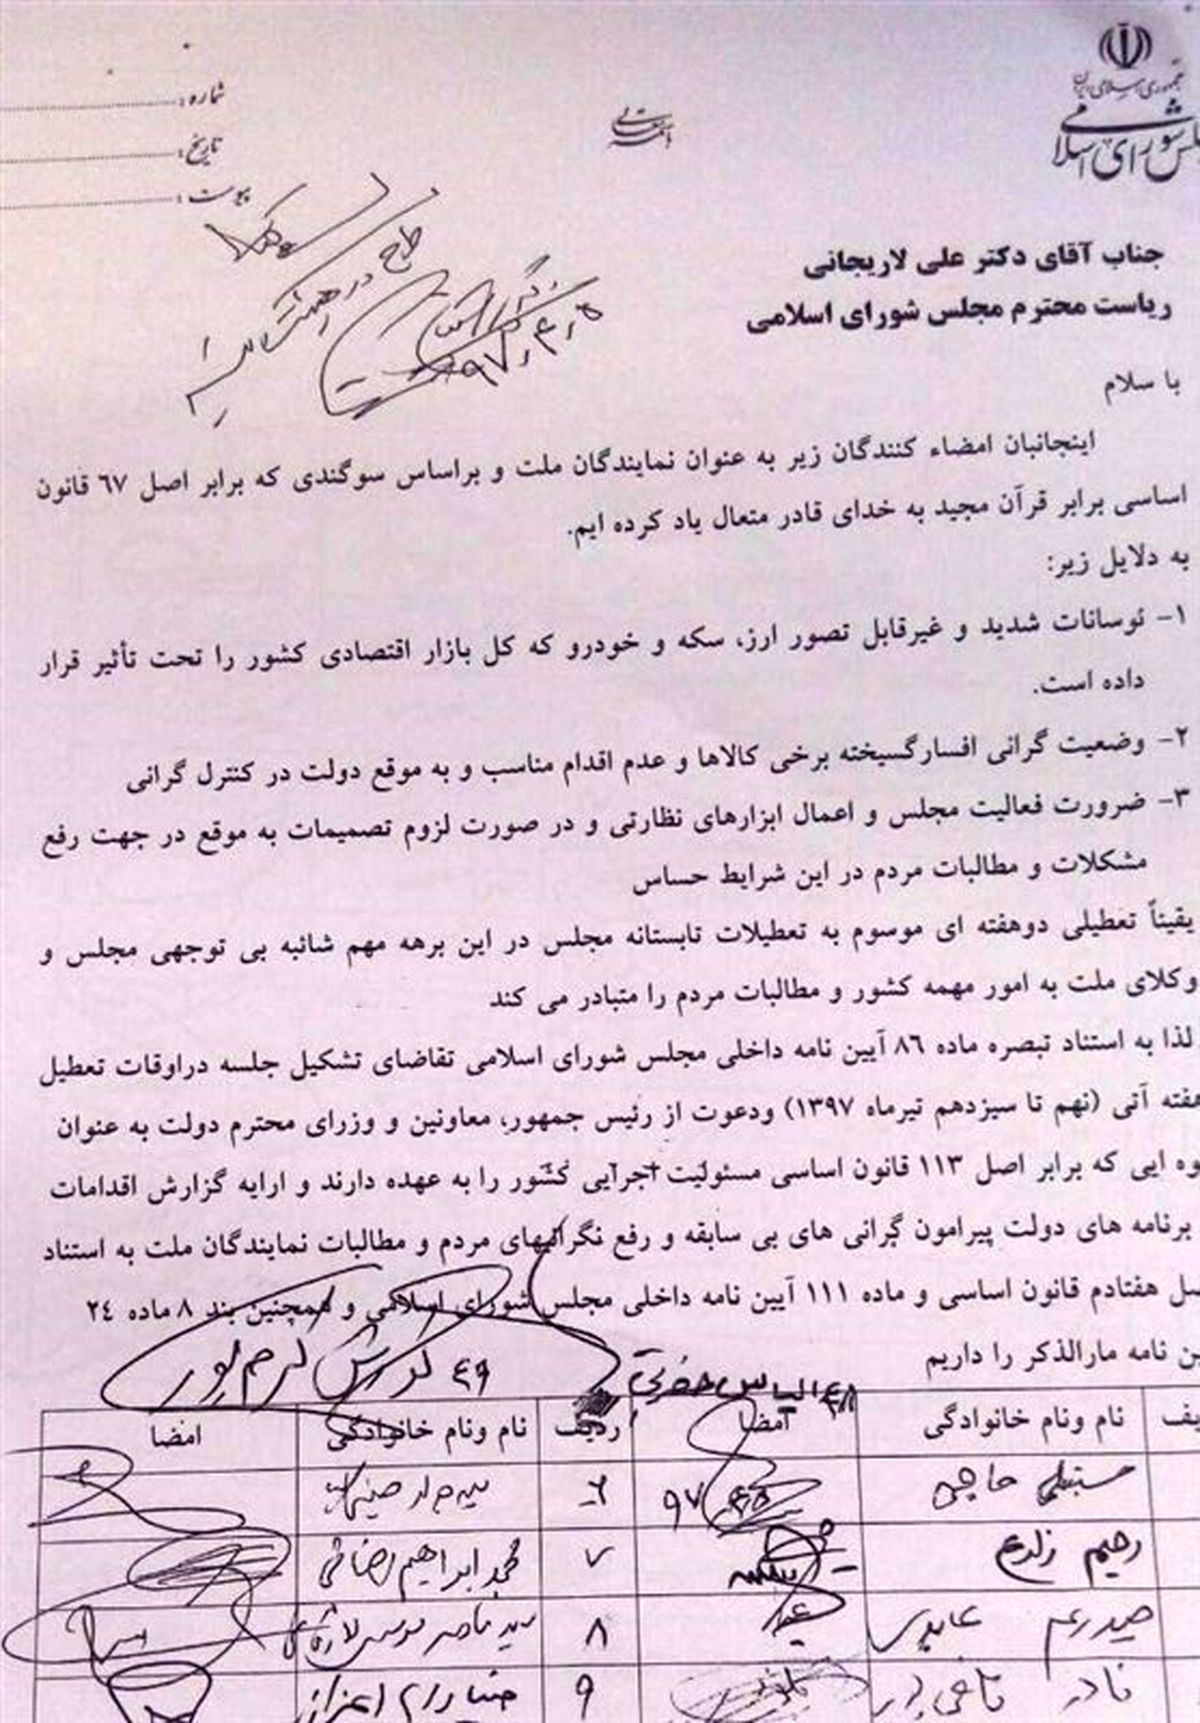 جمهوری اسلامی ایران
مجلس شورای اسلامی
شماره:
تاریخ:
پیوست:
جناب آقای دکتر علی لاریجانی
ریاست محترم مجلس شورای اسلامی
طرح در هیئت رئیسه
۹۷٫۴٫۵
با سلام
اینجانبان امضاء کنندگان زیر به عنوان نمایندگان ملت و براساس سوگندی که برابر اصل ٦٧ قانون
اساسی برابر قرآن مجید به خدای قادر متعال یاد کرده ایم.
به دلایل زیر:
۱- نوسانات شدید و غیرقابل تصور ارز، سکه و خودرو که کل بازار اقتصادی کشور را تحت تأثیر قرار
داده است.
۲- وضعیت گرانی افسارگسیخته برخی کالاها و عدم اقدام مناسب و به موقع دولت در کنترل گرانی
۳- ضرورت فعالیت مجلس و اعمال ابزارهای نظارتی و در صورت لزوم تصمیمات به موقع در جهت رفع
مشکلات و مطالبات مردم در این شرایط حساس
یقیناً تعطیلی دوهفته ای موسوم به تعطیلات تابستانه مجلس در این برهه مهم شائبه بی توجهی مجلس و
وکلای ملت به امور مهمه کشور و مطالبات مردم را متبادر می کند
لذا به استناد تبصره ماده ٨٦ آیین نامه داخلی مجلس شورای اسلامی تقاضای تشکیل جلسه دراوقات تعطیل
هفته آتی (نهم تا سیزدهم تیرماه ۱۳۹۷) ودعوت از رئیس جمهور، معاونین و وزرای محترم دولت به عنوان
وه ایی که برابر اصل ۱۱۳ قانون اساسی مسئولیت اجرایی کشور را به عهده دارند و ارایه گزارش اقدامات
برنامه های دولت پیرامون گرانی های بی سابقه و رفع نگرانیهای مردم و مطالبات نمایندگان ملت به استناد
صل هفتادم قانون اساسی و ماده ۱۱۱ آیین نامه داخلی مجلس شورای اسلامی و همچنین بند ۸ ماده ۲٤
ین نامه مارالذکر را داریم
۴۸ الیاس حضرتی
۴۹ کورش کرم پور
یف نام ونام خانوادگی امضا ردیف نام ونام خانوادگی امضا
حاجی ۹۷ ۶
رحیم زارع ۷ محمد ابراهیم رضائی
عابدی ۸ سید ناصر موسوی لارگانی
نادر قاضی پور ۹